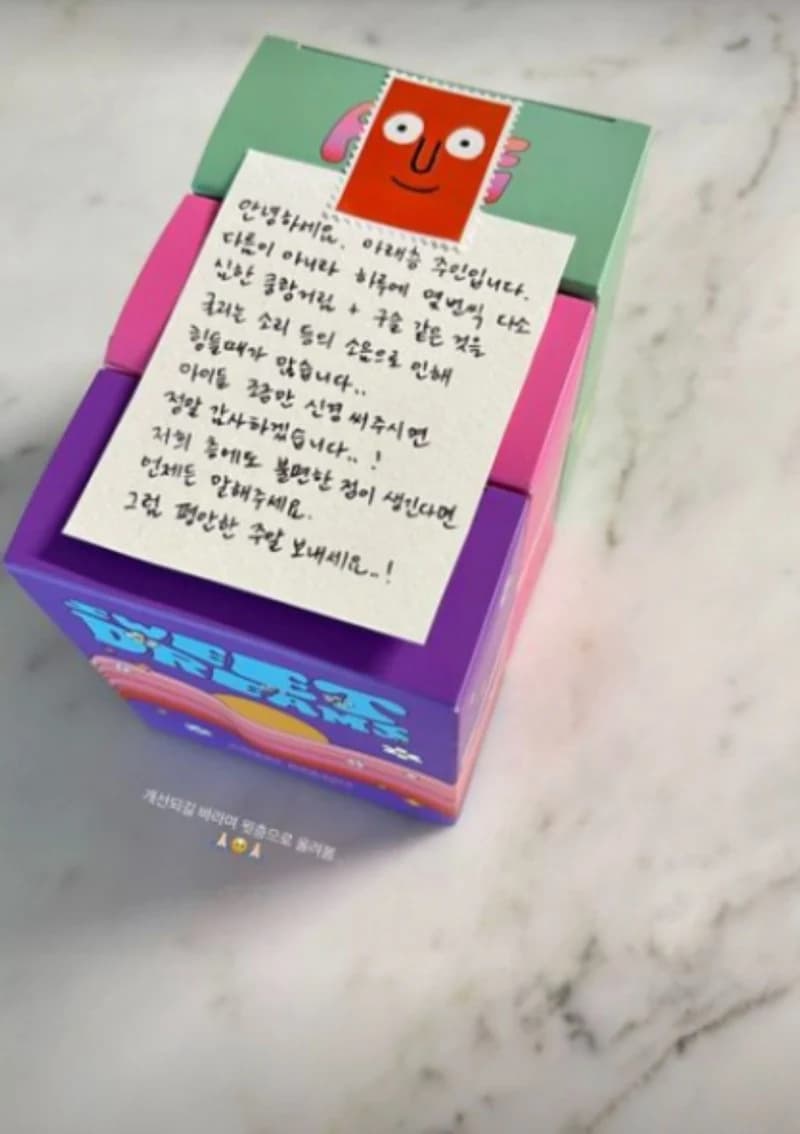 안녕하세요. 아래층 주인입니다.
다름이 아니라 하루에 몇번씩 다소
심한 쿵쾅거림 + 구슬 같은 것을
굴리는 소리 등의 소음으로 인해
힘들때가 많습니다..
아이들 조금만 신경 써주시면
정말 감사하겠습니다..!
저희 층에도 불편한 점이 생긴다면
언제든 말해주세요.
그럼 편안한 주말 보내세요..!
SWEET
DREAMS
개선되길 바라며 윗층으로 올려봄
🙏🏻🥹🙏🏻